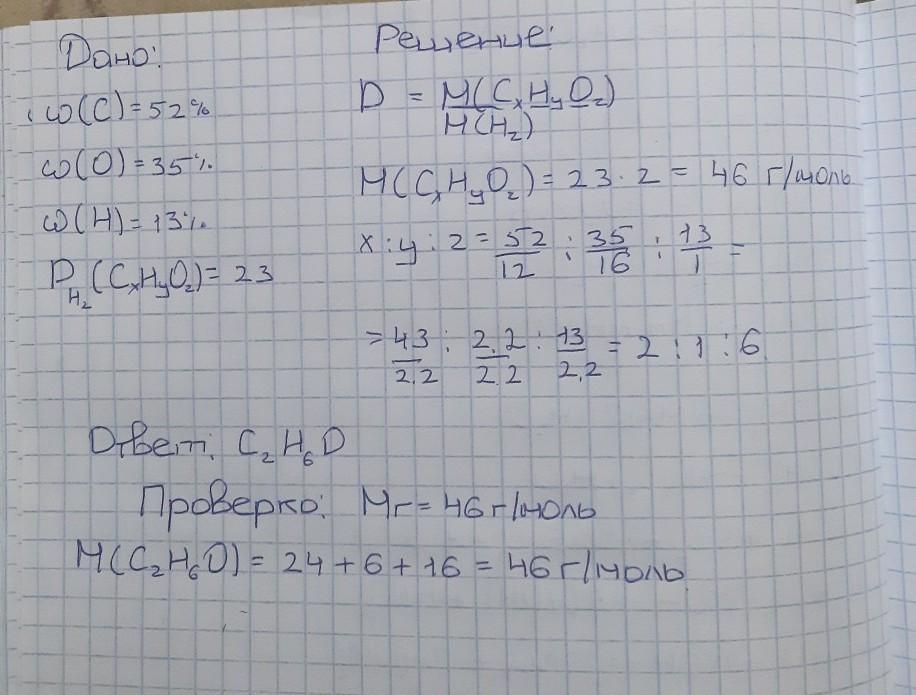 Дано:
ω(C)=52%
ω(O)=35%
ω(H)=13%
D_H₂(CₓHᵧO_z)=23
Решение:
D = M(CₓHᵧO_z)/M(H₂)
M(CₓHᵧO_z)=23·2= 46 г/моль
x:y:z=52/12:35/16:13/1=
=4,3/2.2:2,2/2.2:13/2,2=2:1:6
Ответ: C₂H₆O
Проверка: Mr=46г/моль
M(C₂H₆O)=24+6+16=46г/моль